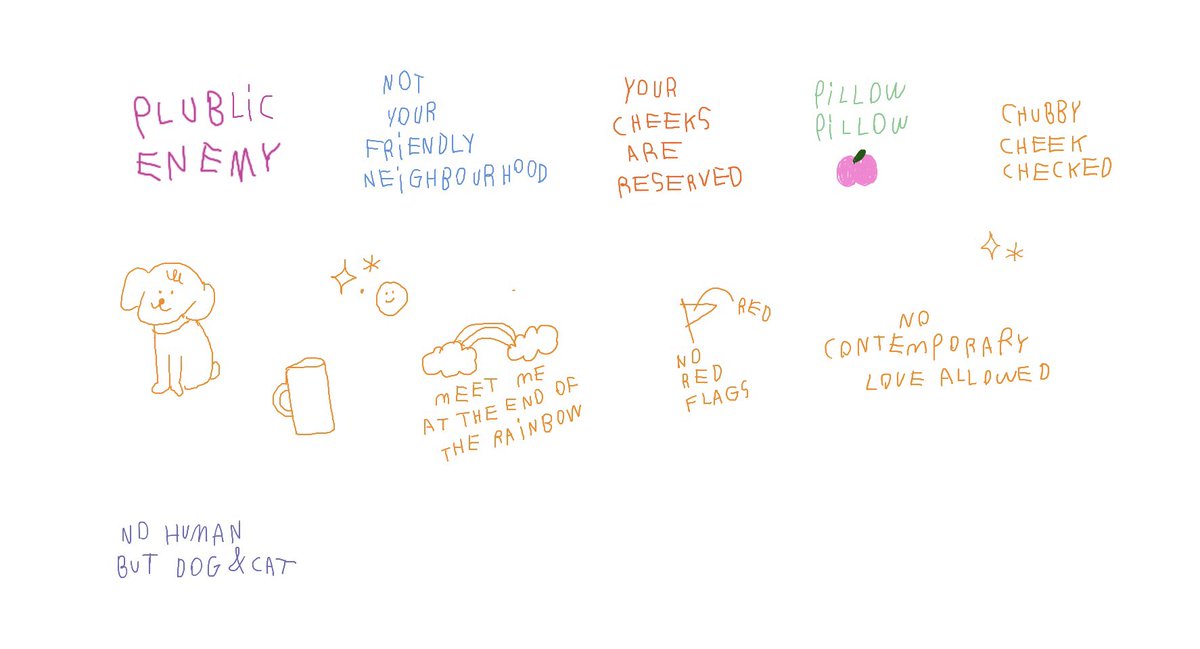 PLUBLiC
ENEMY
NOT
YOUR
FRiENDLY
NEiGHBOURHOOD
YOUR
CHEEKS
ARE
RESERVED
PiLLOW
PiLLOW
CHUBBY
CHEEK
CHECKED
MEET ME
AT THE END OF
THE RAiNBOW
RED
NO
RED
FLAGS
NO
CONTEMPORARY
LOVE ALLOWED
NO HUMAN
BUT DOG & CAT